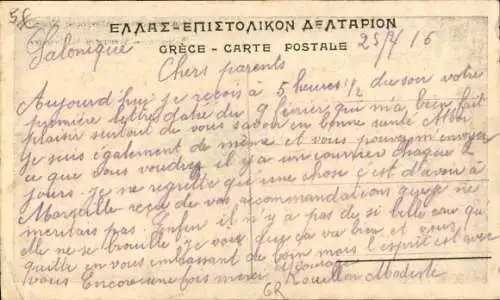 58
ΕΛΛΑΣ-ΕΠΙΣΤΟΛΙΚΟΝ ΔΕΛΤΑΡΙΟΝ
Salonique
GRÈCE - CARTE POSTALE
25/2/16
Chers parents
Aujourd'hui je reçois à 5 heures 1/2 du soir votre
première lettre daté du 9 février qui m'a bien fait
plaisir surtout de vous savoir en bonne santé Moi
je suis également de même et vous pouvez m'envoyer
ce que vous voudrez il y a un courrier chaque 2
jours. Je ne regrette qu'une chose c'est d'avoir à
Marseille reçu de vos recommandations que je ne
meritais pas. Enfin il n'y a pas de si belle eau qu'
elle ne se trouble. Je vois que ça va bien et vous
quitte en vous embrassant de loin mais l'esprit est avec
vous Encore une fois merci
Rouillon Modeste
GR